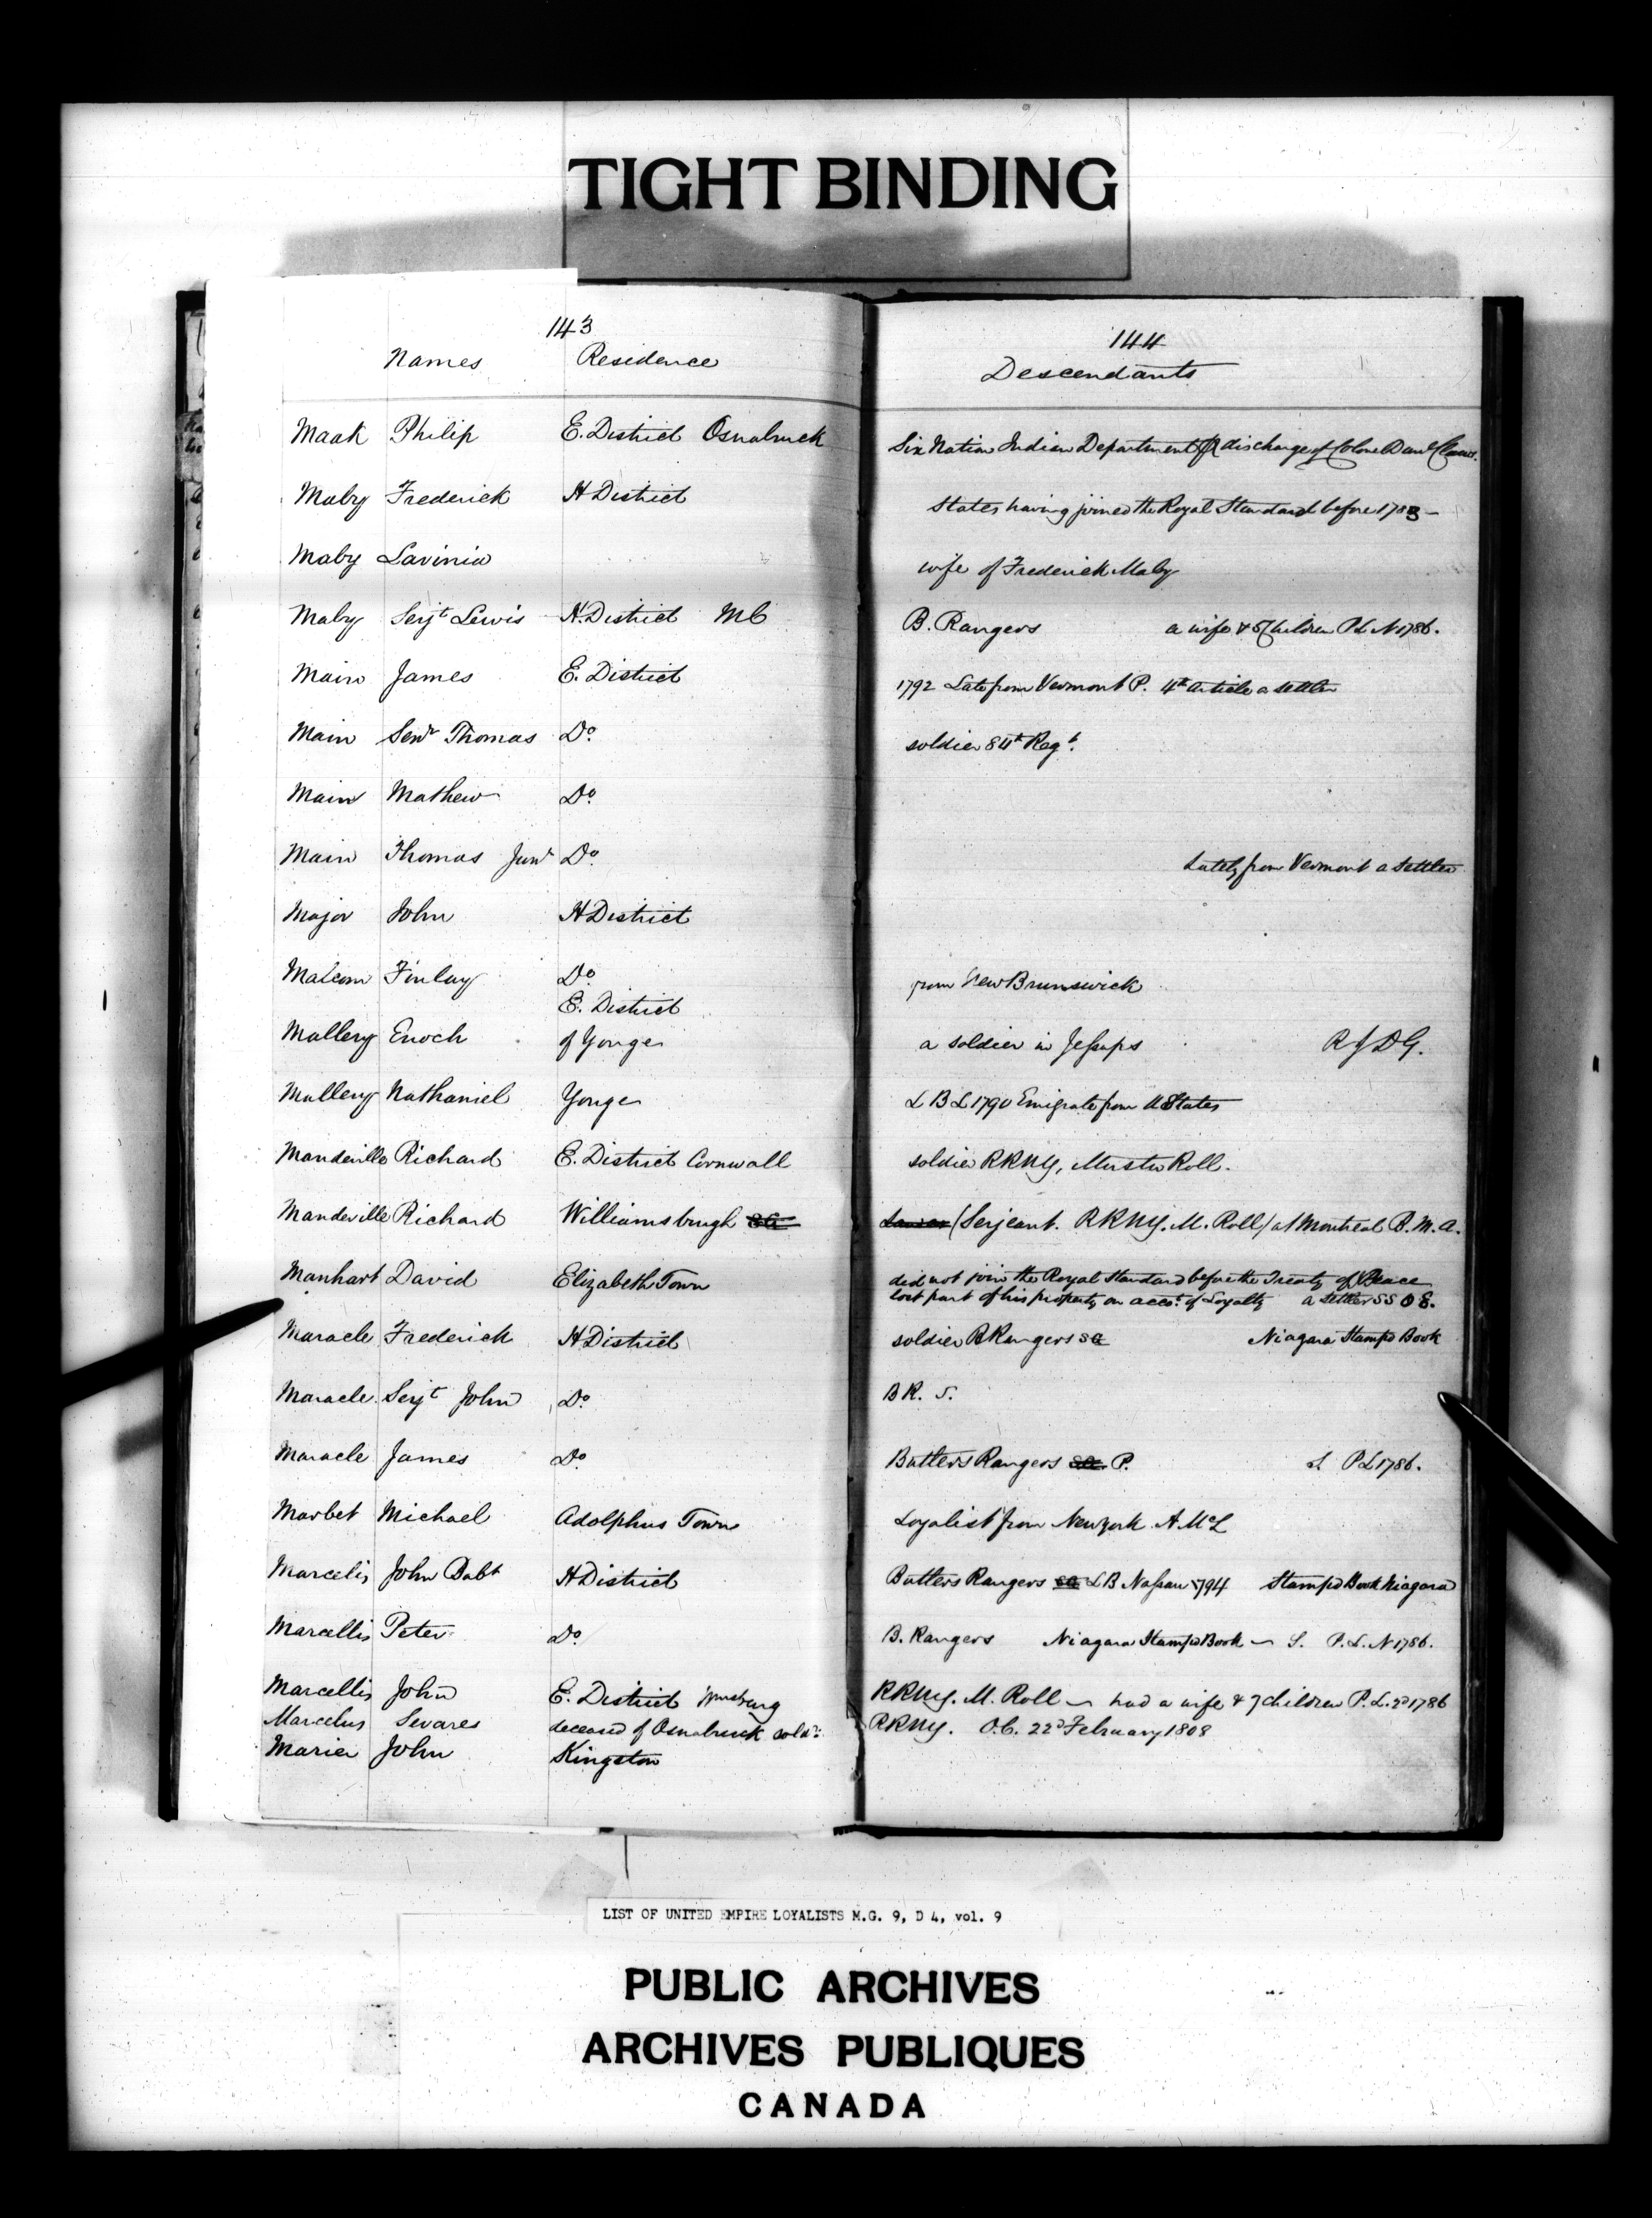 TIGHT BINDING
143
Names Residence
Maak Philip E. District Osnabruck
Maby Frederick H District
Maby Lavinia
Maby Serjt Lewis H. District MC
Main James E. District
Main Senr Thomas Do.
Main Mathew Do.
Main Thomas Junr Do.
Major John H District
Malcom Finlay Do.
E. District
Mallery Enoch of Yonge
Mallery Nathaniel Yonge
Mandeville Richard E. District Cornwall
Mandeville Richard Williamsburgh
Manhart David Elizabeth Town
Maracle Frederick H District
Maracle Serjt John Do.
Maracle James Do
Marbet Michael Adolphus Town
Marcelis John Babt H District
Marcellis Peter Do.
Marcellis John E. District Wmsburg
Marcelus Sevares deceased of Osnabruck sold:
Marier John Kingston
144
Descendants
Six Nation Indian Department discharge of Colonel Danl Claus.
States having joined the Royal Standard before 1783 -
wife of Frederick Maby
B. Rangers a wife & 5 Children P L N 1786.
1792 Late from Vermont P. 4th article a settler
soldier 84th Regt.
Lately from Vermont a settler
from New Brunswick
a soldier in Jessups R J D G.
L B L 1790 Emigrate from U States
soldier RRNY, Muster Roll.
(Serjeant. RRNY. M. Roll) at Montreal B. M. A.
did not join the Royal Standard before the Treaty of Peace
lost part of his property on acct. of Loyalty a settler SS O 8.
soldier B Rangers SG Niagara Stamp'd Book
B R. S.
Butlers Rangers P. S P L 1786.
Loyalist from New york A. McL
Butlers Rangers LB Nassau 1794 Stamp'd Book Niagara
B. Rangers Niagara Stamp'd Book - S. P. L. N 1786.
RRNY. M. Roll - had a wife & 7 children P. L. 2d 1786
RRNY. O. C. 22d February 1808
LIST OF UNITED EMPIRE LOYALISTS M.G. 9, D 4, vol. 9
PUBLIC ARCHIVES
ARCHIVES PUBLIQUES
CANADA